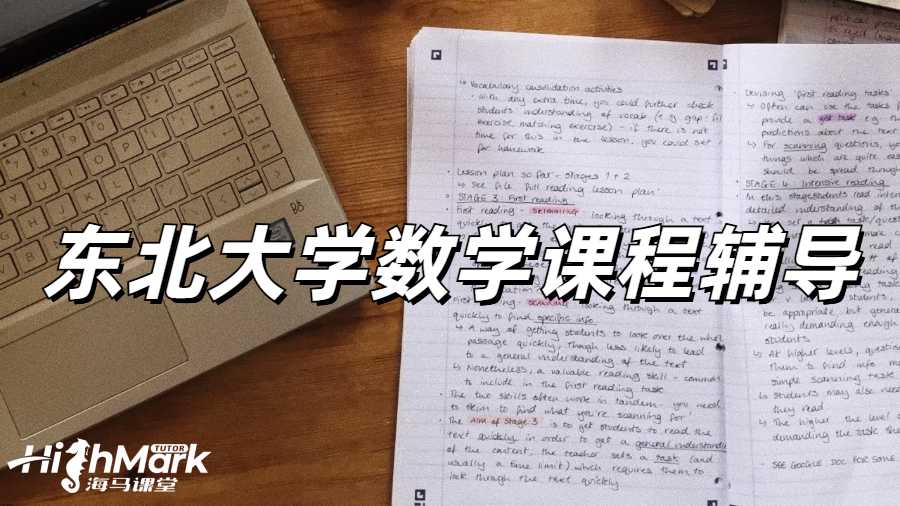 ↳ Vocabulary consolidation activities
• with any extra time, you could further check
students understanding of vocab (e.g gap-fill
exercise, matching exercise) - if there is not
time for this in the lesson, you could set
for homework
• Lesson plan so far - stages 1 + 2
↳ see file 'full reading lesson plan'
STAGE 3: First reading
First reading - skimming looking through a text
quickly
东北大学数学课程辅导
First reading - scanning looking through a text
quickly to find specific info
↳ A way of getting students to look over the whole
passage quickly, though less likely to lead
to a general understanding of the text
↳ Nonetheless, a valuable reading skill - common
to include in the first reading task
• The two skills often work in tandem - you need
to skim to find what you're scanning for
• The Aim of Stage 3 is to get students to read the
text quickly in order to get a general understanding
of the content, the teacher sets a task (and
usually a time limit) which requires them to
look through the text quickly
Devising 'first reading tasks'
↳ Often can use the tasks
provide a gist task e.g.
predictions about the text
↳ For scanning questions, yo
things which are quite eas
should be spread through
STAGE 4: Intensive reading
In this stage students read inten
detailed understanding of the
be appropriate, but genera
really demanding enough
students
↳ At higher levels, question
them to find info
simple scanning task
↳ Students may also need
they read
↳ The higher the level
demanding the task sho
- SEE GOOGLE DOC FOR SOME
HighMark
TUTOR
海马课堂